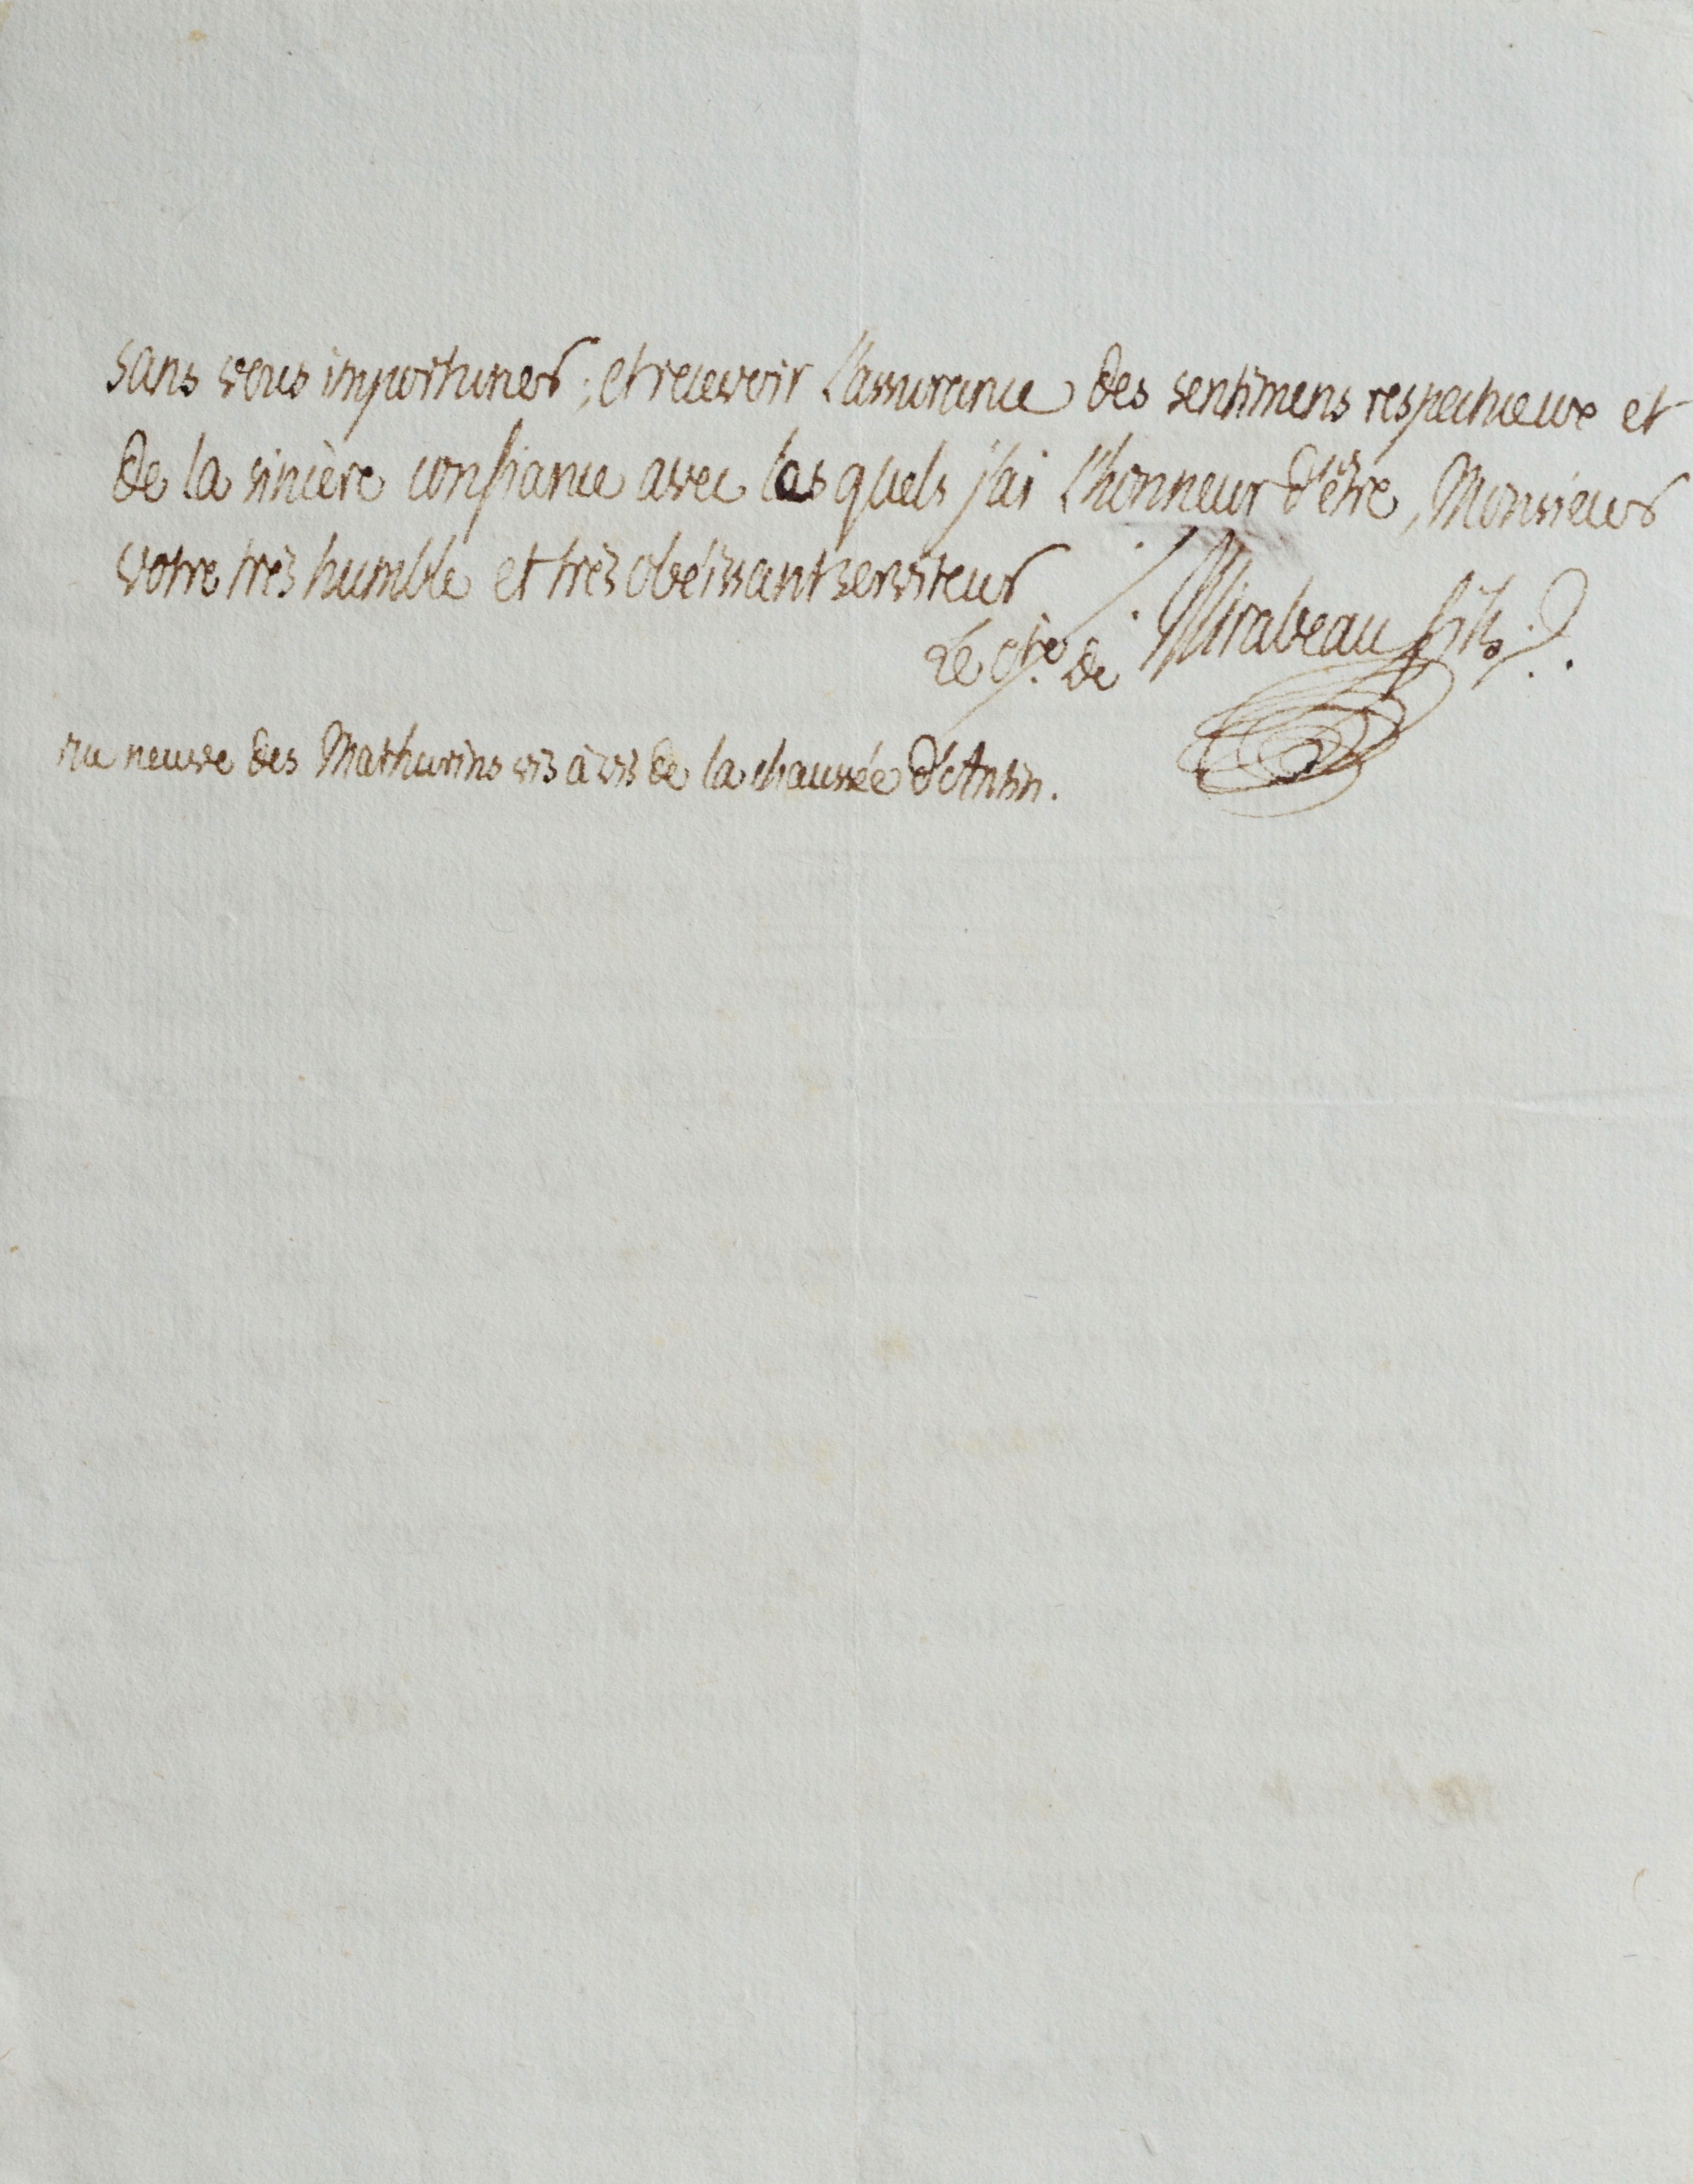 sans vous importuner ; et recevoir l'assurance des sentimens respectueux et
de la sincère confiance avec les quels j'ai l'honneur d'être, Monsieur
votre très humble et très obéissant serviteur
Le cte. de Mirabeau fils.
rue neuve des Mathurins vis à vis de la chaussée d'Antin.